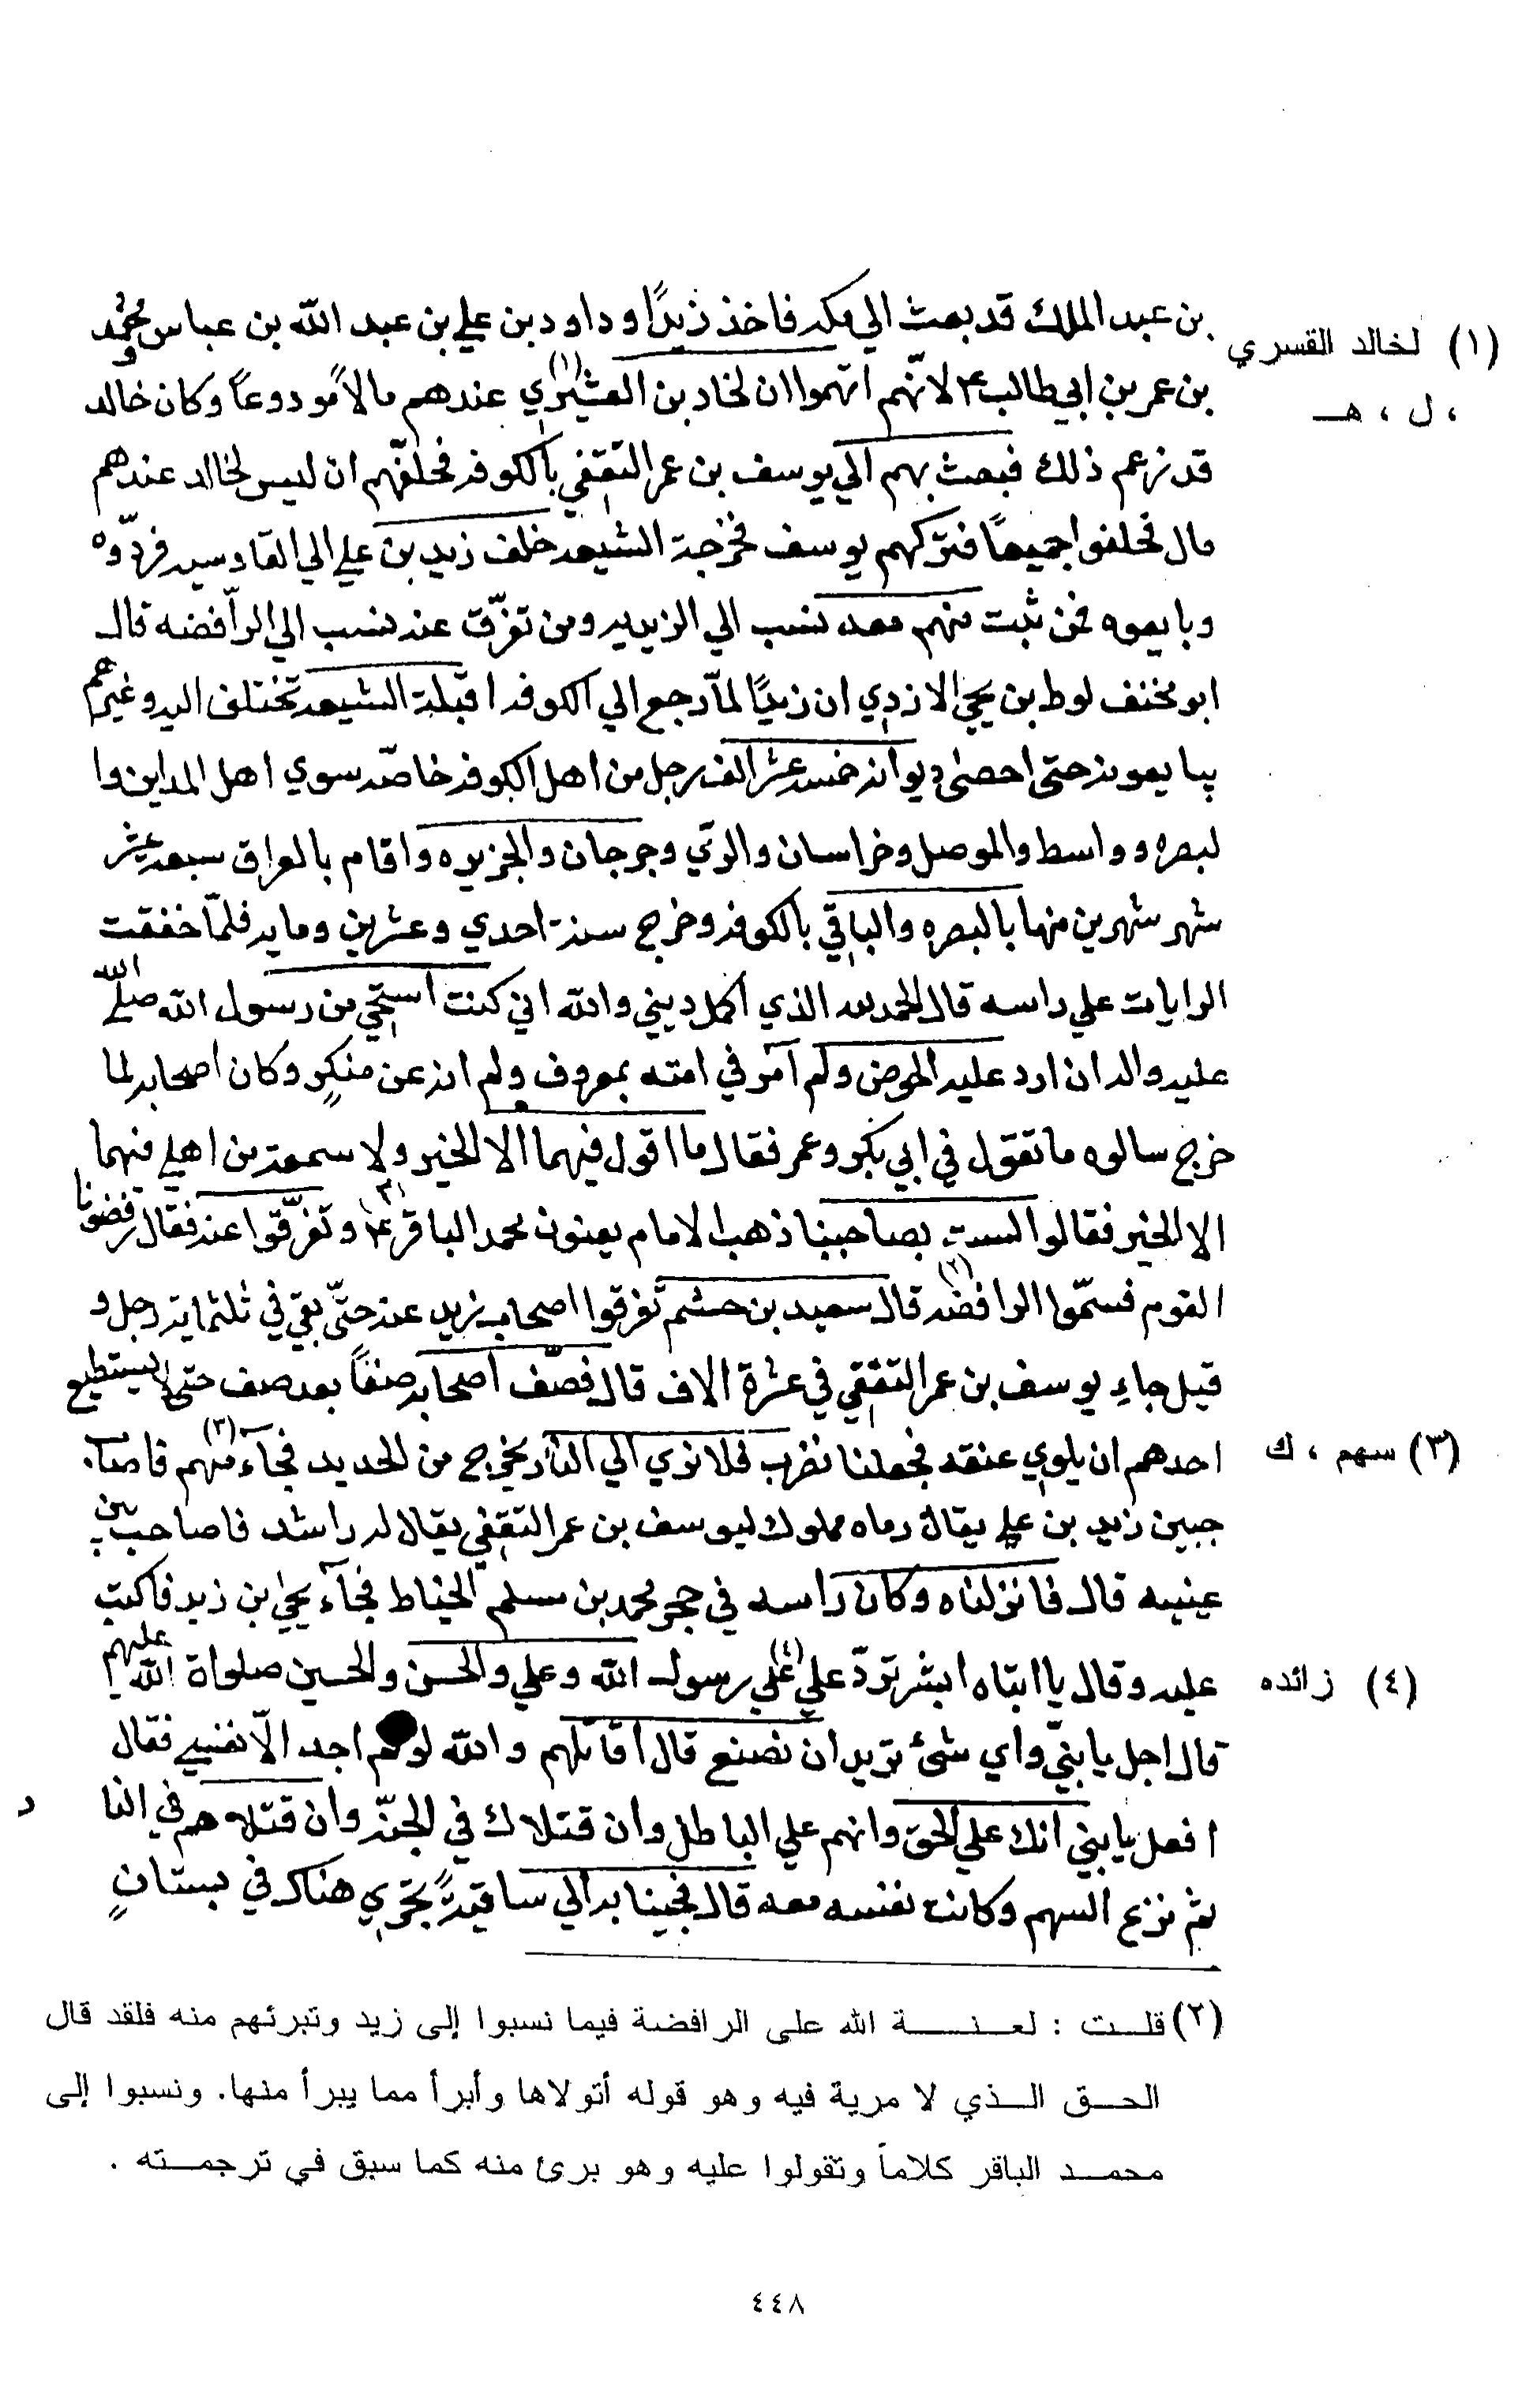 بن عبد الملك قد بعث الي مكه فاخذ زيدًا وداود بن علي بن عبد الله بن عباس ومحمد
بن عمر بن ابي طالب ع م لانّهم اتهموا ان لخاد بن العشيري (١) عندهم مالاً مودوعاً وكان خالد
قد زعم ذلك فبعث بهم الي يوسف بن عمر الثقفي بالكوفه فحلفّهم ان ليس لخالد عندهم
مال فحلفوا جميعاً فتركهم يوسف فخرجة الشيعه خلف زيد بن علي الي القادسيه فردّوه
وبايعوه فمن ثبت منهم معه نسب الي الزيديه ومن تفرّق عنه نسب الي الرّافضه قال
ابو مخنف لوط بن يحيي الازدي ان زيدًا لمّا رجع الي الكوفه اقبلة الشيعه تختلف اليه وغيرهم
يبايعونه حتى احصى ديوانه خمسه عشر الف رجل من اهل الكوفه خاصّه سوي اهل المداين وا
لبصره وواسط والموصل وخراسان والري وجرجان والجزيره واقام بالعراق سبعه عشر
شهر شهرين منها بالبصره والباقي بالكوفه وخرج سنة احدي وعشرين ومايه فلمّا خفقت
الرايات علي راسه قال الحمد لله الذي اكمل ديني والله اني كنت استحيي من رسول الله صلّى الله
عليه واله ان ارد عليه الحوض ولم آمر في امته بمعروف ولم انه عن منكرٍ وكان اصحابه لما
خرج سالوه ما تقول في ابي بكر وعمر فقال ما اقول فيهما الا الخير ولا سمعة من اهلي فيهما
الا الخير فقالوا لست بصاحبنا ذهب الامام يعنون محمد الباقر ع م وتفرّقوا عنه فقال رفضونا
القوم فسمّوا الرافضه (٢) قال سعيد بن خشم تفرقوا اصحاب زيد عنه حتّى بقي في ثلثماية رجل و
قيل جاء يوسف بن عمر الثقفي في عشرة الاف قال فصّف اصحابه صنفاً بعد صف حتى لا يستطيع
احدهم ان يلوي عنقه فجعلنا نضرب فلا نري الي النار يخرج من الحديد فجآء منهم (٣) فاصاب
جبين زيد بن علي يقال رماه مملوك ليوسف بن عمر الثقفي يقال له راشد فاصاحب بين
عينيه قال فانزلناه وكان راسه في حجر محمد بن مسلم الخياط فجآء يحيى بن زيد فاكب
عليه وقال يا ابتاه ابشر تردّ علي (٤) علي رسول الله وعلي والحسن والحسين صلواة الله عليهم
قال اجل يا بنيّ واي شئ تريد ان تصنع قال اقاتلهم والله لو لم اجد الّا نفسي فقال
افعل يا بني انك علي الحق وانهم علي الباطل وان قتلاك في الجنّه وان قتلاهم في النا
ر
ثم نزع السهم وكانت نفسه معه قال فجينا به الي ساقيةً تجري هناك في بستانٍ
(١) لخالد القسري
، ل ، هـ
(٣) سهم ، ك
(٤) زائده
(٢) قلت : لعنة الله على الرافضة فيما نسبوا إلى زيد وتبرئهم منه فلقد قال
الحق الذي لا مرية فيه وهو قوله أتولاها وأبرأ مما يبرأ منها. ونسبوا إلى
محمد الباقر كلاماً وتقولوا عليه وهو برئ منه كما سبق في ترجمته .
٤٤٨